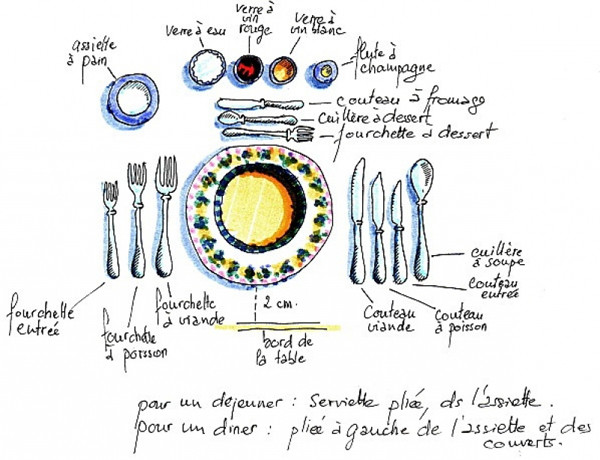 verre à eau
verre à
vin
rouge
verre à
vin blanc
flute à
champagne
assiette
à pain
couteau à fromage
cuillère à dessert
fourchette à dessert
fourchette
entrée
fourchette
à poisson
fourchette
à viande
2 cm.
bord de
la table
Couteau
viande
couteau
à poisson
couteau
entrée
cuillère
à soupe
pour un déjeuner : Serviette pliée, ds l'assiette.
pour un diner : pliée à gauche de l'assiette et des
couverts.